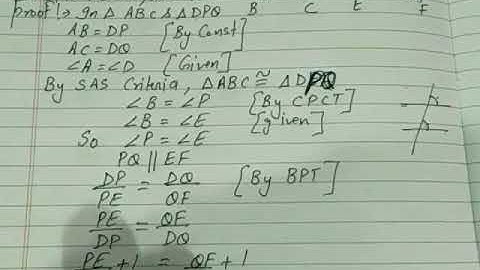 proof :→ In Δ ABC & Δ DPQ B C E F
AB = DP [By Const]
AC = DQ
∠A = ∠D [Given]
By SAS Criteria, ΔABC ≅ ΔDPQ
∠B = ∠P [By CPCT]
∠B = ∠E [given]
So ∠P = ∠E
PQ || EF
DP/PE = DQ/QF [By BPT]
PE/DP = QF/DQ
PE + 1 = QF + 1